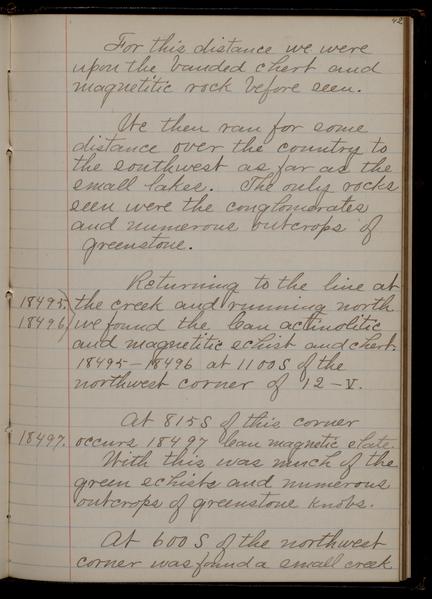 42
For this distance we were
upon the banded chert and
magnetitic rock before seen.
We then ran for some
distance over the country to
the southwest as far as the
small lakes. The only rocks
seen were the conglomerates
and numerous outcrops of
greenstone.
Returning to the line at
18495) the creek and running north
18496) we found the lean actinolitic
and magnetitic schist and chert.
18495-18496 at 1100S of the
northwest corner of 12-V.
At 815S of this corner
18497. occurs 18497 lean magnetic slate.
With this was much of the
green schists and numerous
outcrops of greenstone knobs.
At 600S of the northwest
corner was found a small creek